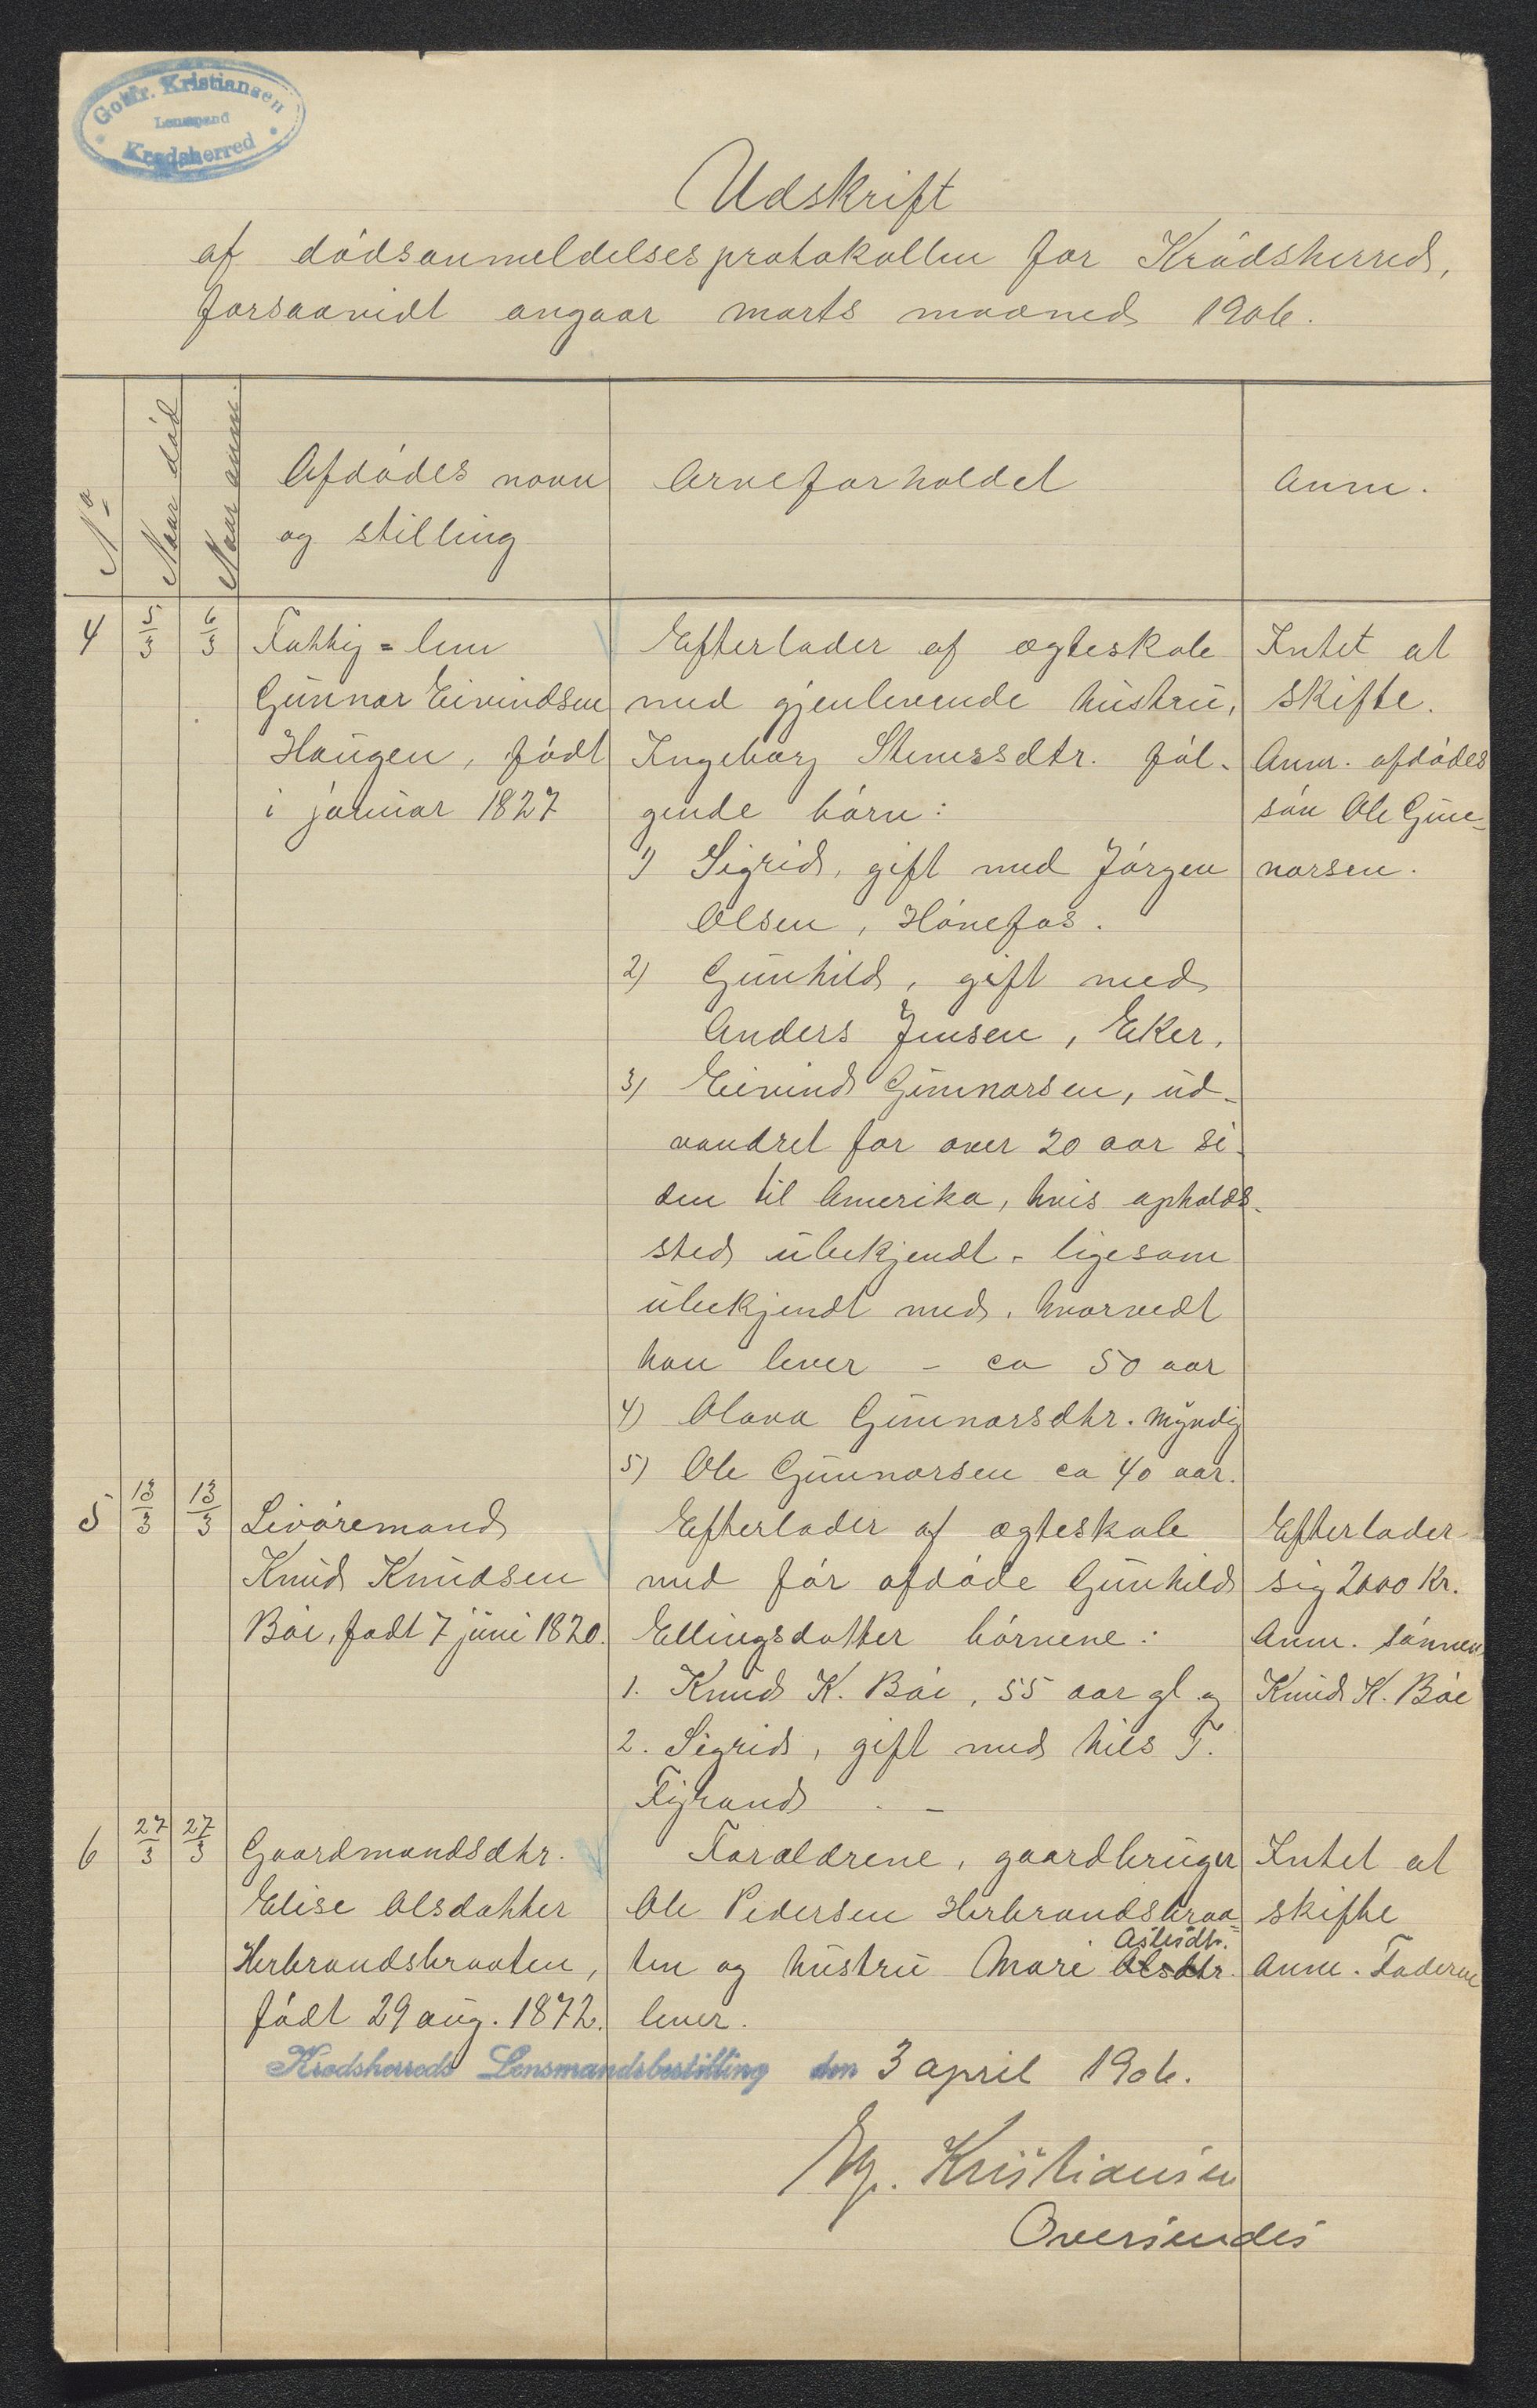 Gottfr. Kristiansen
Lensmand
Krødsherred
Udskrift
af dødsanmeldelsesprotokollen for Krødsherred,
forsaavidt angaar marts maaned 1906.
No
Naar død
Naar anm.
Afdødes navn
og stilling
Arveforholdet
Anm.
4
5/3
6/3
Fattig=lem
Gunnar Eivindsen
Haugen, født
i januar 1827
Efterlader af ægteskab
med gjenlevende hustru,
Ingeborg Stenersdtr. føl-
gende børn:
1) Sigrid, gift med Jørgen
Olsen, Hønefos.
2) Gunhild, gift med
Anders Jensen, Eker.
3) Eivind Gunnarsen, ud-
vandret for over 20 aar si-
den til Amerika, hvis opholds-
sted ubekjendt - ligesom
ubekjendt med, hvorvidt
han lever - ca 50 aar
4) Olava Gunnarsdtr. myndig
5) Ole Gunnarsen ca 40 aar.
Intet at
skifte.
Anm. afdødes
søn Ole Gun-
narsen.
5
13/3
13/3
Livøremand
Knud Knudsen
Bøe, født 7 juni 1820.
Efterlader af ægteskab
med før afdøde Gunhild
Ellingsdatter børnene:
1. Knud K. Bøe, 55 aar gl. og
2. Sigrid, gift med Nils T.
Efterlader
sig 2000 Kr.
Anm. sønnen
Knud K. Bøe
6
27/3
27/3
Gaardmandsdtr.
Elise Olsdatter
Herbrandsbraaten,
født 29 aug. 1872.
Forældrene, gaardbruger
Ole Pedersen Herbrandsbraa-
ten og hustru Mari Olsdtr.
lever.
Intet at
skifte
Anm. Faderen
Krødsherreds Lensmandsbestilling den 3 april 1906.
Kristiansen
Oversendes